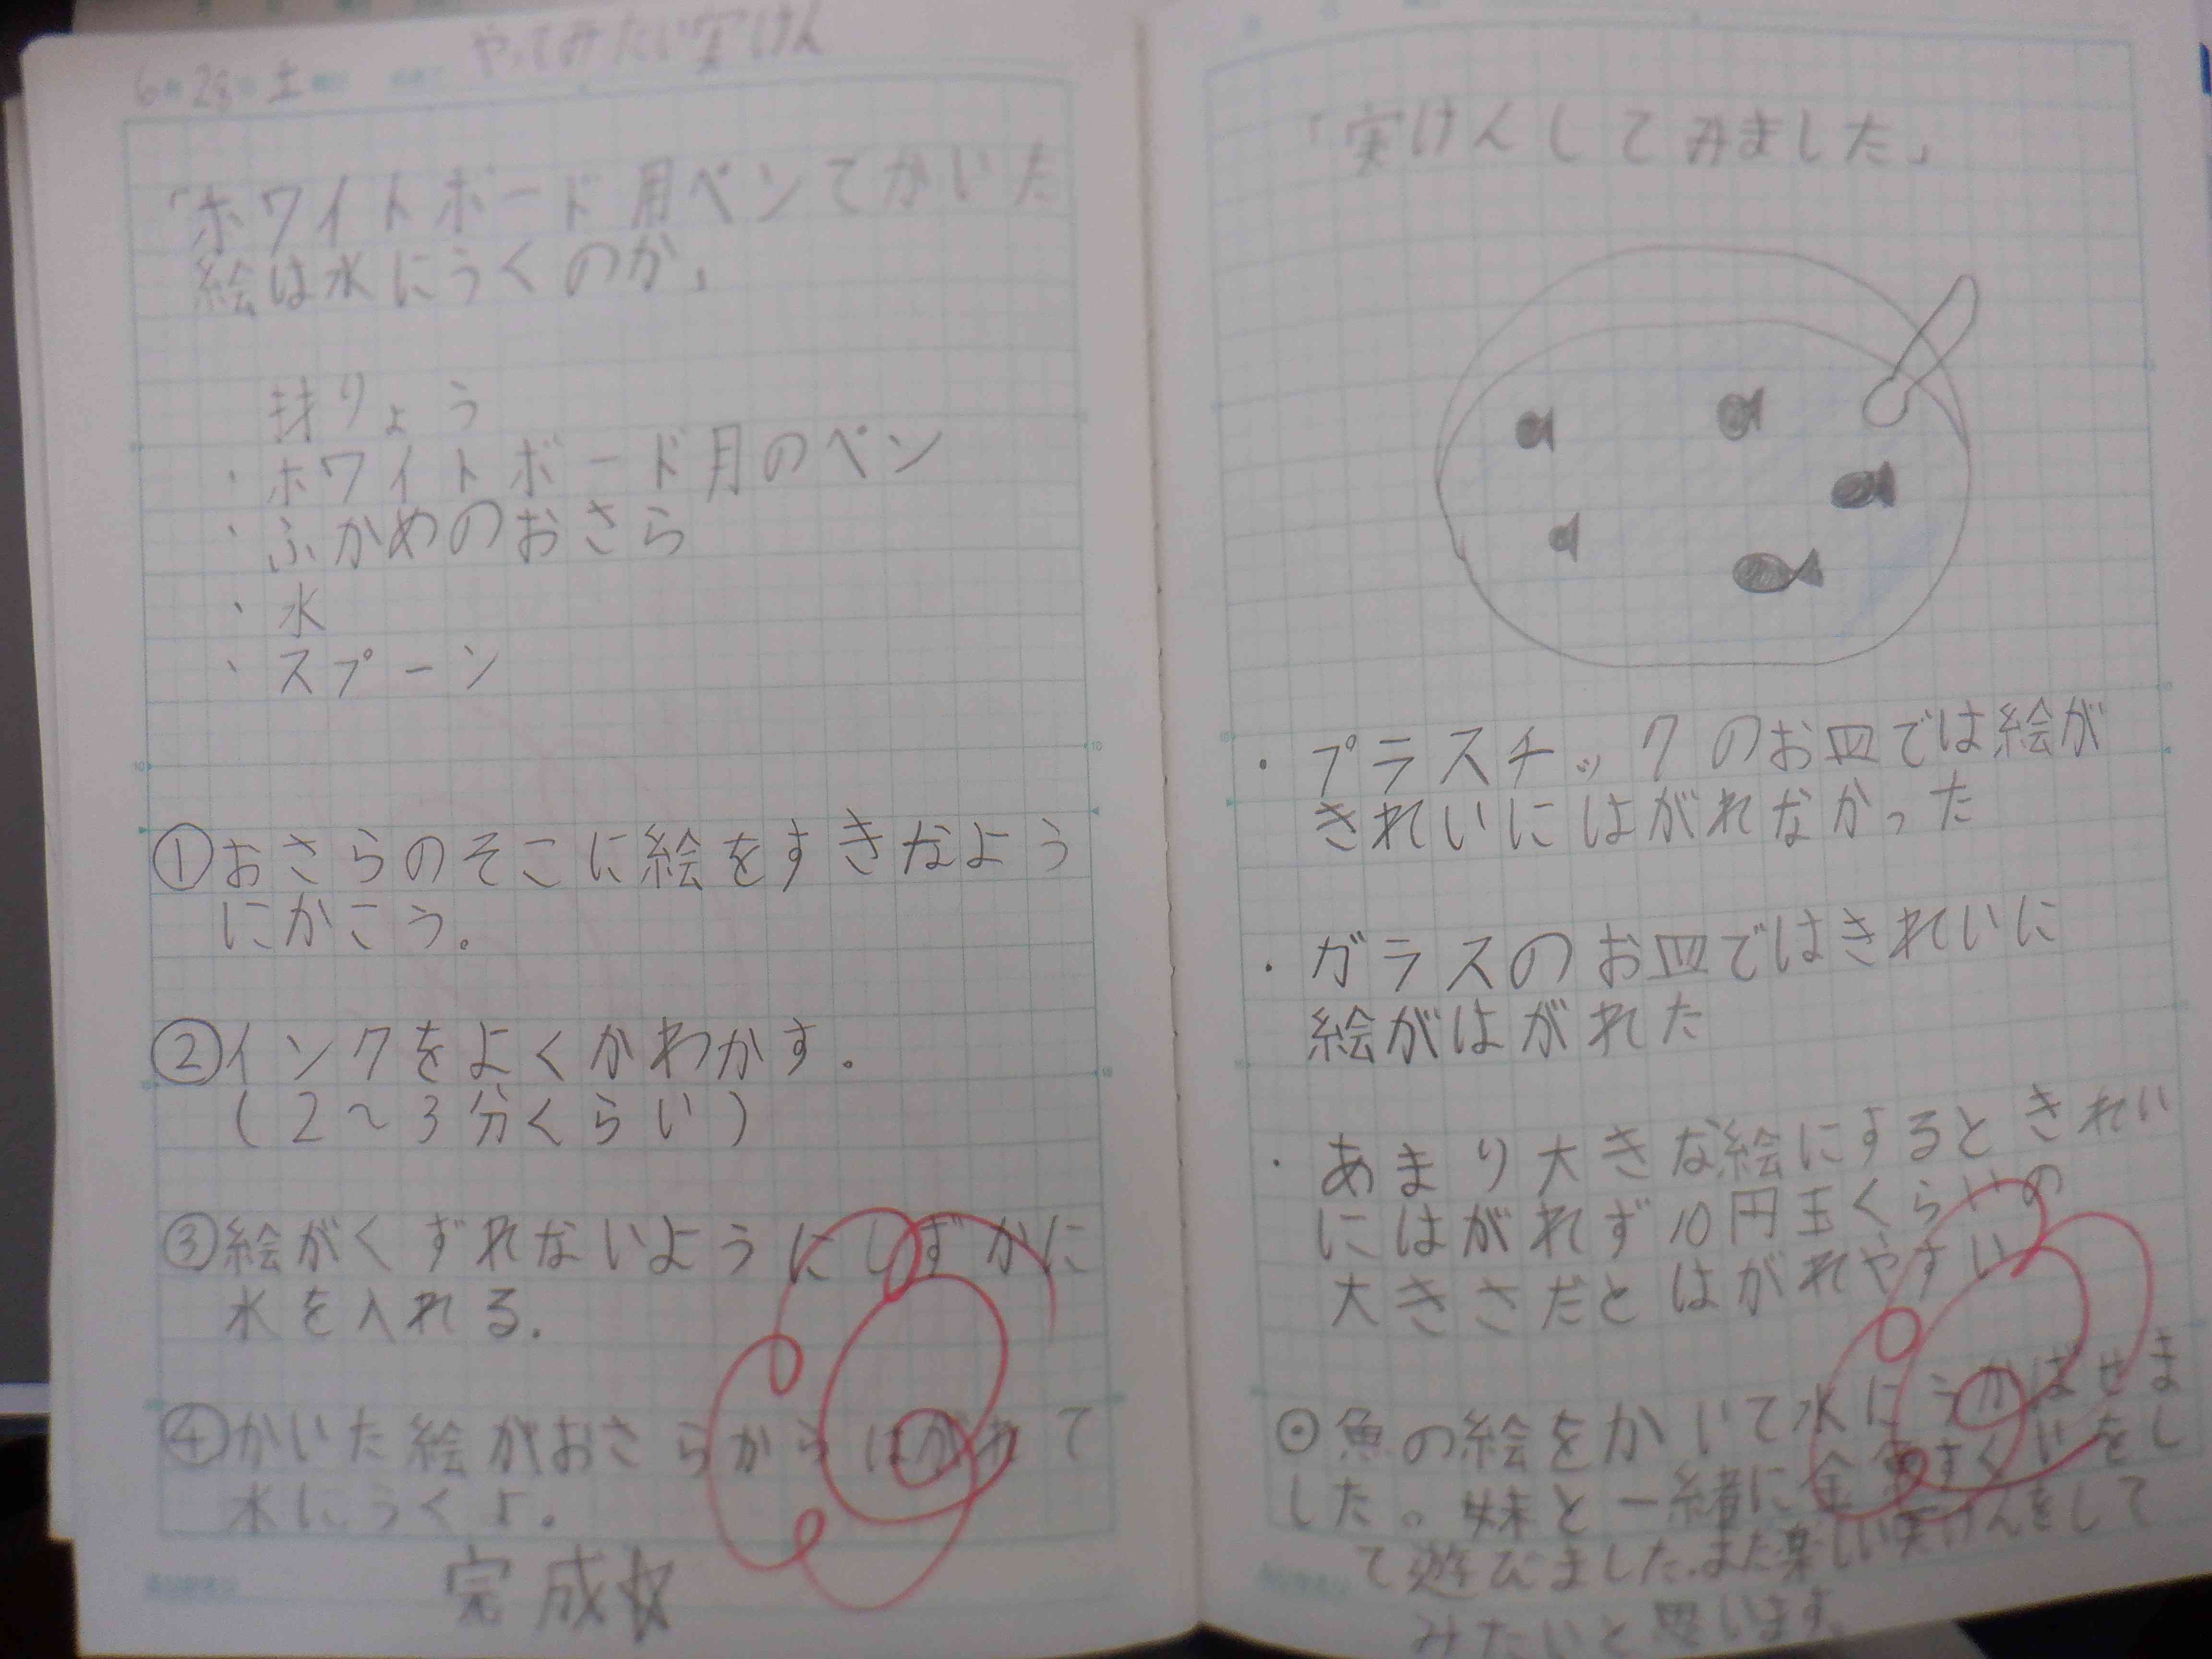 6月28日土曜日 やってみたい実けん
「ホワイトボード用ペンでかいた
絵は水にうくのか」
材りょう
・ホワイトボード用のペン
・ふかめのおさら
・水
・スプーン
①おさらのそこに絵をすきなよう
にかこう。
②インクをよくかわかす.
(2〜3分くらい)
③絵がくずれないようにしずかに
水を入れる.
④かいた絵がおさらからはがれて
水にうくよ.
完成☆
「実けんしてみました」
・プラスチックのお皿では絵が
きれいにはがれなかった
・ガラスのお皿ではきれいに
絵がはがれた
・あまり大きな絵にするときれい
にはがれず10円玉くらいの
大きさだとはがれやすい
⊙魚の絵をかいて水にうかばせま
した。妹と一緒に金魚すくいをし
て遊びました.また楽しい実けんをして
みたいと思います.